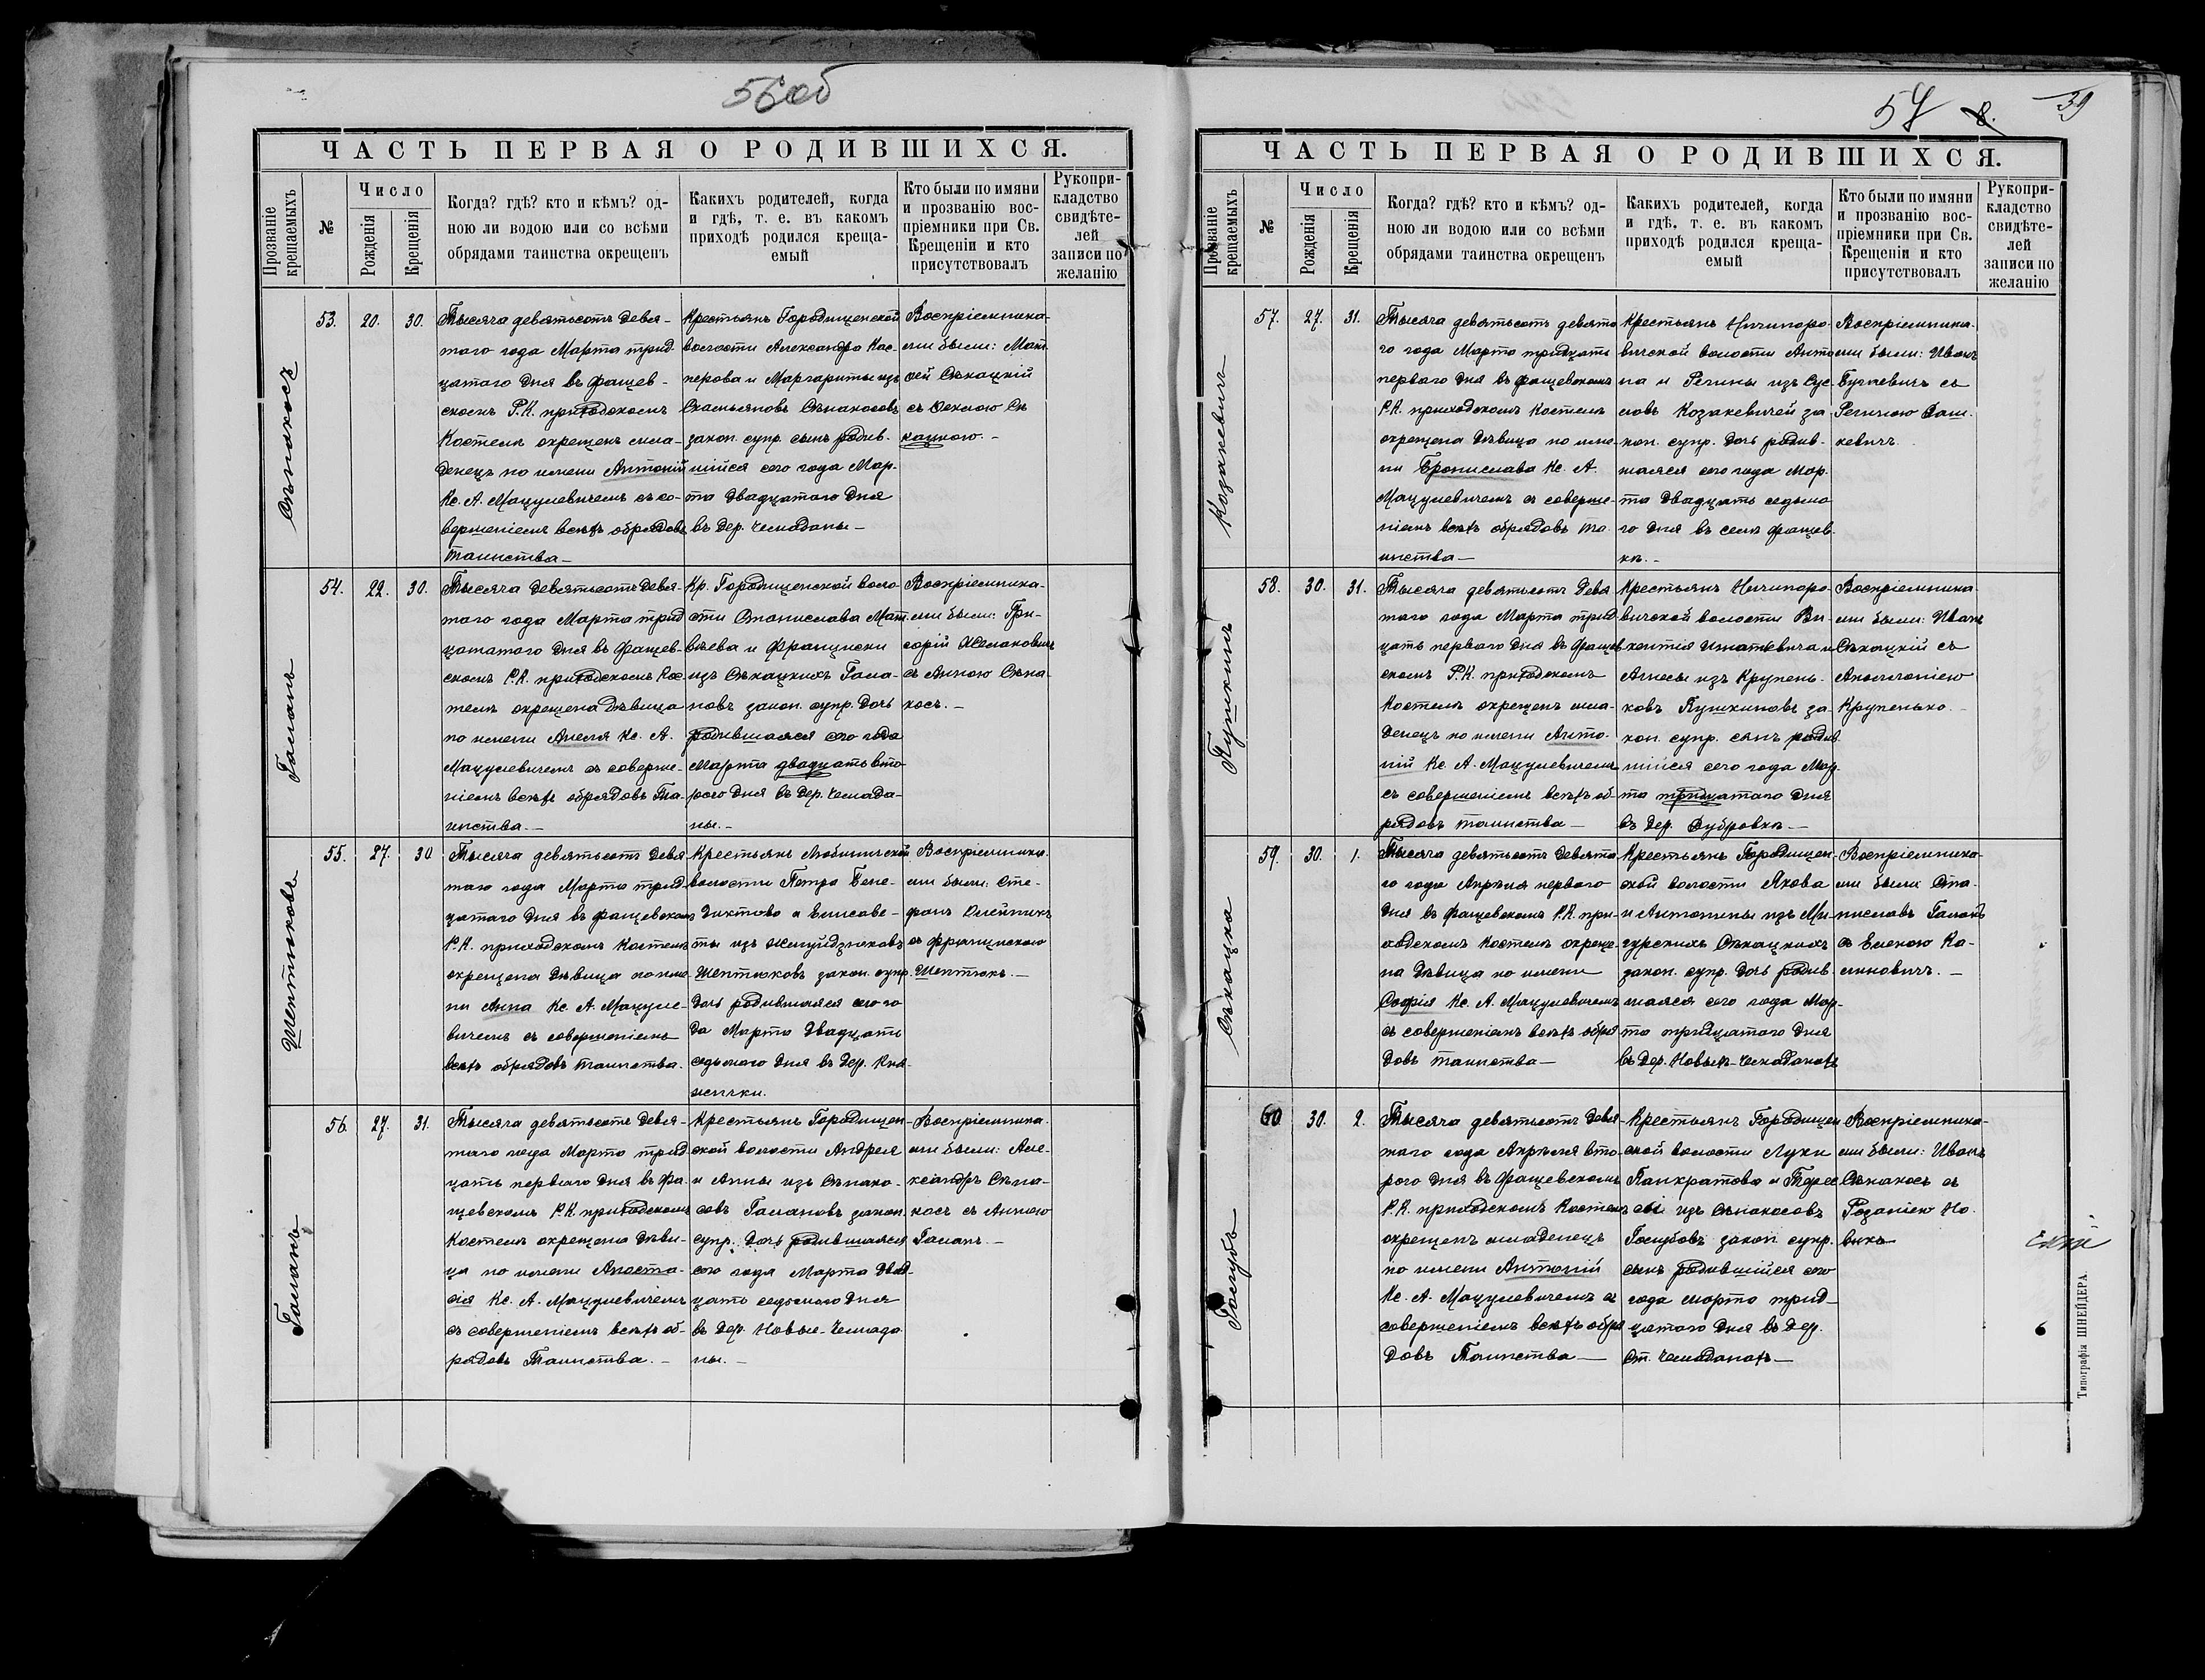 56об
ЧАСТЬ ПЕРВАЯ О РОДИВШИХСЯ.
Прозваніе крещаемыхъ
№
Число
Рожденія
Крещенія
Когда? гдѣ? кто и кѣмъ? од-
ною ли водою или со всѣми
обрядами таинства окрещенъ
Каких​ъ родителей, когда
и гдѣ, т. е. въ какомъ
приходѣ родился креща-
емый
Кто были по имяни
и прозванію вос-
пріемники при Св.
Крещеніи и кто
присутствовалъ
Рукопри-
кладство
свидѣте-
лей
записи по
желанію
Сѣнакосъ
53.
20.
30.
Тысяча девятьсотъ девя-
таго года Марта трид-
цатаго дня въ Фащев-
скомъ Р.К. приходскомъ
Костелѣ окрещенъ мла-
денецъ по имени Антоній
Кс. А. Мацулевичемъ съ со-
вершеніемъ всѣхъ обрядовъ
таинства—
Крестьянъ Городищенской
волости Александра Кас-
перова и Маргариты изъ
Сѣнакосовъ
закон. супр. сынъ родив-
шійся сего года Мар-
та двадцатаго дня
въ дер. Чемаданы—
Воспріемника-
ми были: Мат-
вей Сѣкацкій
съ Феклою Сѣ
кацкою.—
Галанъ
54.
22.
30.
Тысяча девятьсотъ девя-
таго года Марта трид
цатаго дня въ Фащев-
скомъ Р.К. приходскомъ Кос-
телѣ окрещена дѣвица
по имени Анеля Кс. А.
Мацулевичемъ съ соверше-
ніемъ всѣхъ обрядовъ Та-
инства.—
Кр. Городищенской воло-
сти Станислава Мат-
вѣева и Франциски
изъ Сѣкацкихъ Гала-
новъ закон. супр. дочь
родившаяся сего года
Марта двадцать вто-
рого дня въ дер. Чемада-
ны.—
Воспріемника-
ми были: Гри-
горій Жмаковичъ
съ Анною Сѣна-
косъ.—
Шептюковъ
55.
27.
30
Тысяча девятьсотъ девя
таго года Марта трид-
цатаго дня въ Фащевскомъ
Р.К. приходскомъ Костелѣ
окрещена дѣвица по име-
ни Анна Кс. А. Мацуле-
вичемъ съ совершеніемъ
всѣхъ обрядовъ таинства.
Крестьянъ Любашской
волости Петра Бене-
диктова и Елисаве-
ты изъ Жмуйдзюковъ
Шептюковъ закон. супр.
дочь родившаяся сего го
да Марта двадцать
седьмого дня въ дер. Кня-
жички.
Воспріемника-
ми были: Сте-
фанъ Олейникъ
съ Францискою
Шептюкъ.—
Галанъ
56.
27.
31.
Тысяча девятьсотъ девя-
таго года Марта трид
цать перваго дня въ Фа-
щевскомъ Р.К. приходскомъ
Костелѣ окрещена дѣви-
ца по имени Анаста-
сія Кс. А. Мацулевичемъ
съ совершеніемъ всѣхъ об-
рядовъ Таинства.—
Крестьянъ Городищен-
ской волости Андрея
и Анны изъ Сѣнако-
совъ Галановъ закон.
супр. дочь родившаяся
сего года Марта двад-
цать седьмого дня
въ дер. Новые-Чемада
ны.—
Воспріемника-
ми были: Але-
ксандръ Сѣна-
косъ съ Анною
Галанъ.—
57
8.
39
ЧАСТЬ ПЕРВАЯ О РОДИВШИХСЯ.
Прозваніе крещаемыхъ
№
Число
Рожденія
Крещенія
Когда? гдѣ? кто и кѣмъ? од-
ною ли водою или со всѣми
обрядами таинства окрещенъ
Какихъ родителей, когда
и гдѣ, т. е. въ какомъ
приходѣ родился креща-
емый
Кто были по имяни
и прозванію вос-
пріемники при Св.
Крещеніи и кто
присутствовалъ
Рукопри-
кладство
свидѣте-
лей
записи по
желанію
Козакевичъ
57.
27.
31.
Тысяча девятьсотъ девята
го года Марта тридцать
перваго дня въ Фащевскомъ
Р.К. приходскомъ Костелѣ
окрещена дѣвица по име-
ни Бронислава Кс. А.
Мацулевичемъ съ соверше-
ніемъ всѣхъ обрядовъ та
инства—
Крестьянъ Ничипоро-
вичской волости Анто-
на и Регины изъ Сус-
ловъ Козакевичей за
кон. супр. дочь родив-
шаяся сего года Мар
та двадцать седьмо
го дня въ селѣ Фащев-
кѣ.—
Воспріемника-
ми были: Иванъ
съ
Региною Даш-
кевичъ.
Пушкинъ
58.
30.
31.
Тысяча девятьсотъ девя
таго года Марта трид
цать перваго дня въ Фащев
скомъ Р.К. приходскомъ
Костелѣ окрещенъ мла-
денецъ по имени Анто-
ній Кс. А. Мацулевичемъ
съ совершеніемъ всѣхъ об-
рядовъ таинства—
Крестьянъ Ничипоро-
вичской волости Ви-
кентія Игнатьевича и
Агнесы изъ Крупень-
ковъ Пушкиновъ за-
кон. супр. сынъ родив
шійся сего года Мар-
та тридцатаго дня
въ дер. Дубровкѣ.—
Воспріемника-
ми были: Иванъ
Сѣкацкій съ
Аполлоніею
Крупенько.—
Сѣкацка
59.
30.
1.
Тысяча девятьсотъ девята
го года Апрѣля перваго
дня въ Фащевскомъ Р.К. при-
ходскомъ Костелѣ окреще-
на дѣвица по имени
Софія Кс. А. Мацулевичемъ
съ совершеніемъ всѣхъ обря
довъ таинства—
Крестьянъ Городищен-
ской волости Якова
и Антонины изъ Ми-
гурскихъ Сѣкацкихъ
закон. супр. дочь родив
шаяся сего года Мар-
та тридцатаго дня
въ дер. Новыхъ-Чемаданахъ
Воспріемника-
ми были Ста-
ниславъ Галанъ
съ Еленою Ка-
линовичъ.—
Голубъ
60
30.
2.
Тысяча девятьсотъ девя-
таго года Апрѣля вто-
рого дня въ Фащевскомъ
Р.К. приходскомъ Костелѣ
окрещенъ младенецъ
по имени Антоній
Кс. А. Мацулевичемъ съ
совершеніемъ всѣхъ обря
довъ Таинства—
Крестьянъ Городищен
ской волости Луки
Панкратова и Терес
сы изъ Сѣнакосовъ
Голубовъ закон супр.
сынъ родившійся сего
года марта трид-
цатаго дня въ дер.
Ст. Чемаданахъ—
Воспріемника-
ми были: Иванъ
Сѣнакосъ съ
Розаліею Но-
викъ
Типографія ШНЕЙДЕРА.